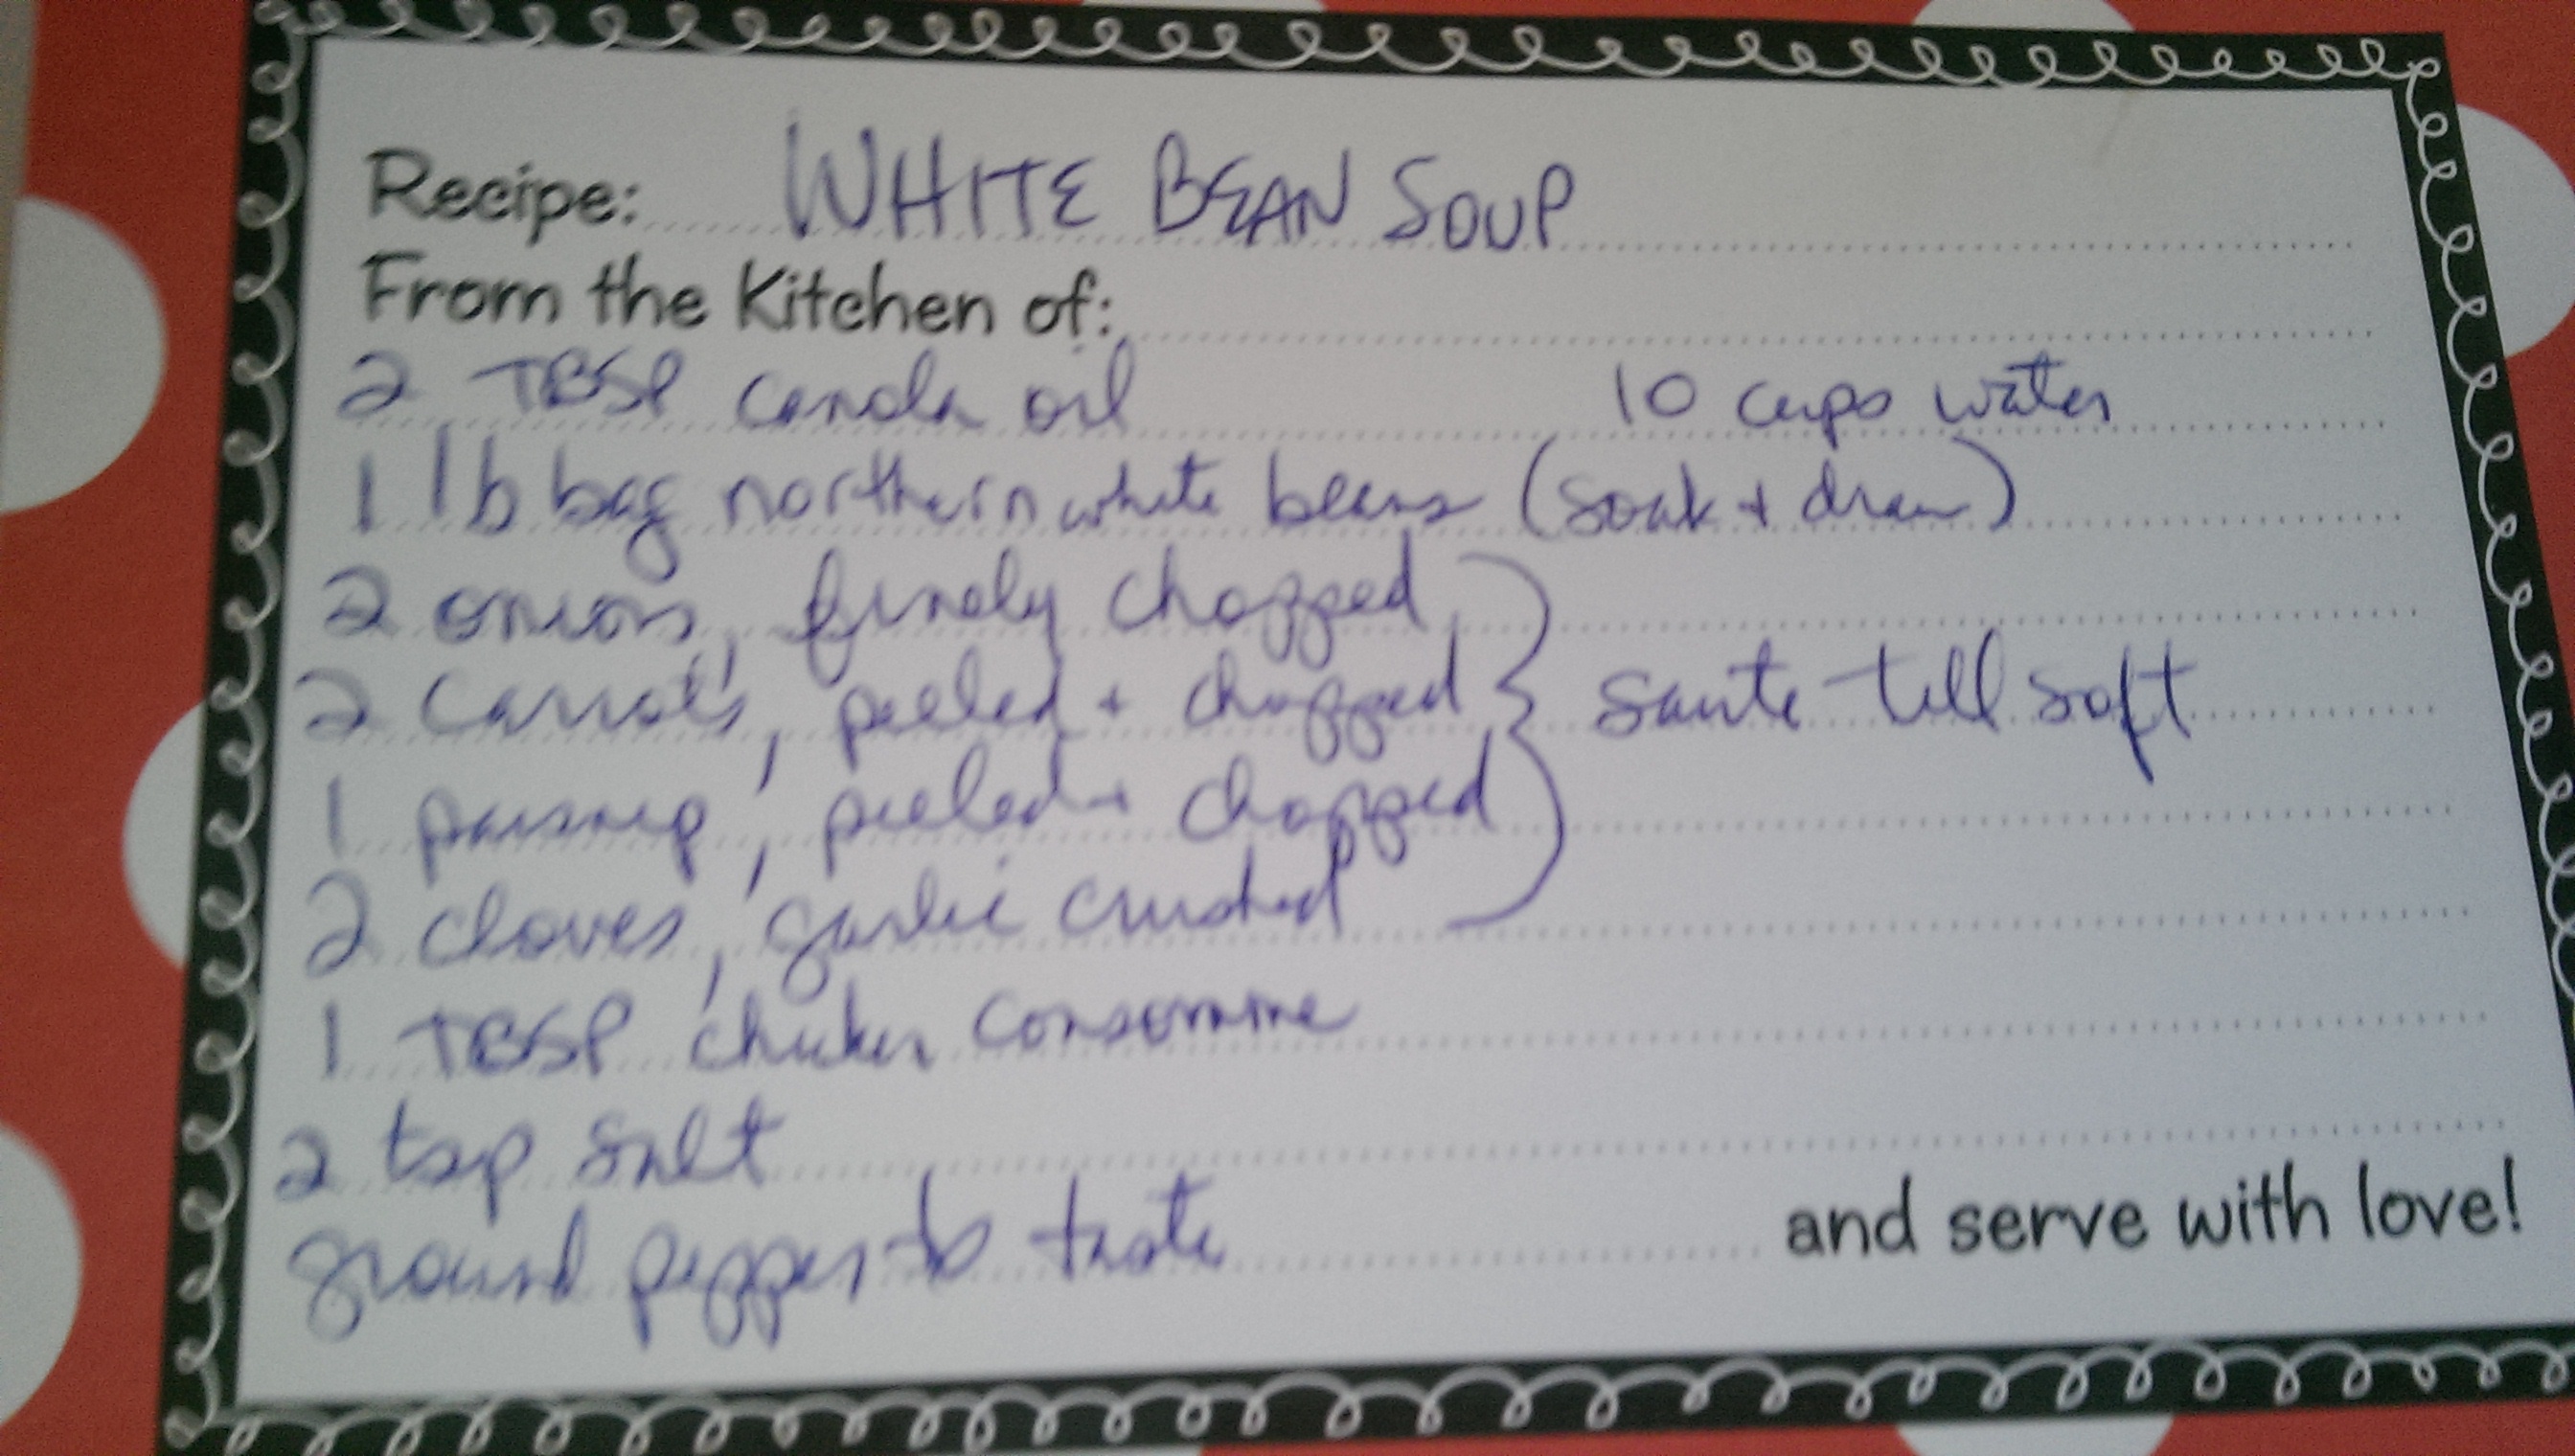 Recipe: WHITE BEAN SOUP
From the Kitchen of:
2 TBSP canola oil 10 cups water
1 lb bag northern white beans (soak + drain)
2 onions, finely chopped
2 carrots, peeled + chopped saute till soft
1 parsnip, peeled + chopped
2 cloves, garlic crushed
1 TBSP chicken consomme
2 tsp salt
ground pepper to taste and serve with love!